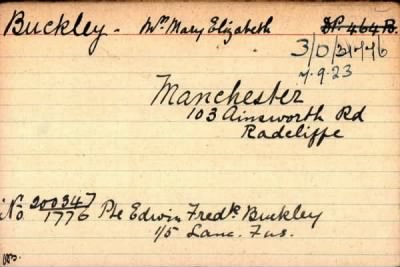 Buckley - Mrs Mary Elizabeth
D.P. 464 B.
7.9.23
Manchester
103 Ainsworth Rd
Radcliffe
No 200347
1776 Pte Edwin Fredk Buckley
1/5 Lanc. Fus.